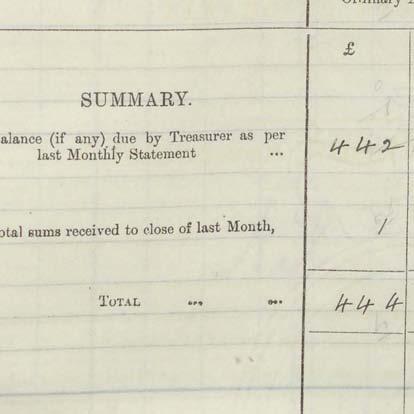 £
SUMMARY.
alance (if any) due by Treasurer as per
last Monthly Statement ... 442
otal sums received to close of last Month, 1
TOTAL ... ... 444